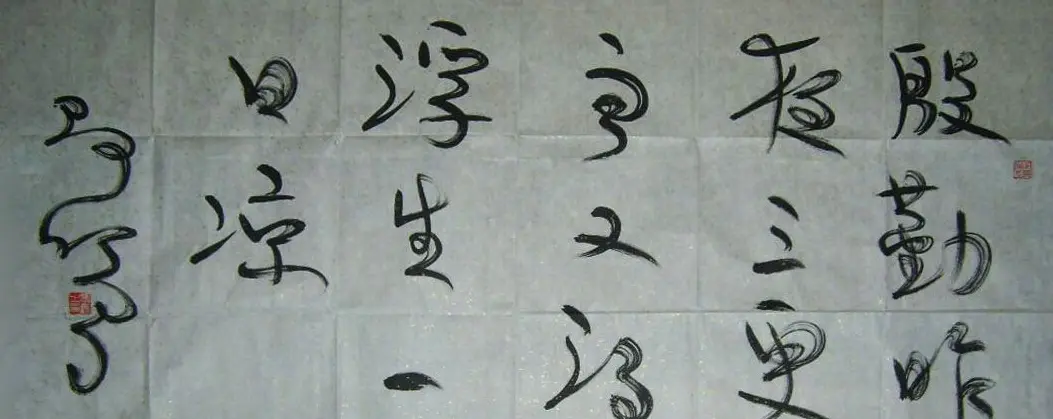 殷勤昨
夜三更
雨又得
浮生一
日凉